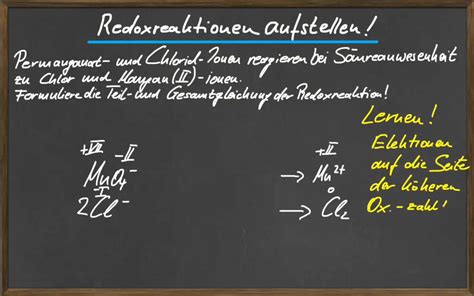 Redoxreaktionen aufstellen!
Permanganat- und Chlorid-Ionen reagieren bei Säureanwesenheit
zu Chlor und Mangan(II)-ionen.
Formuliere die Teil- und Gesamtgleichung der Redoxreaktion!
Lernen!
Elektronen
auf die Seite
der höheren
Ox.-zahl!
+VII -II +II
MnO₄⁻ → Mn²⁺
-I 0
2Cl⁻ → Cl₂